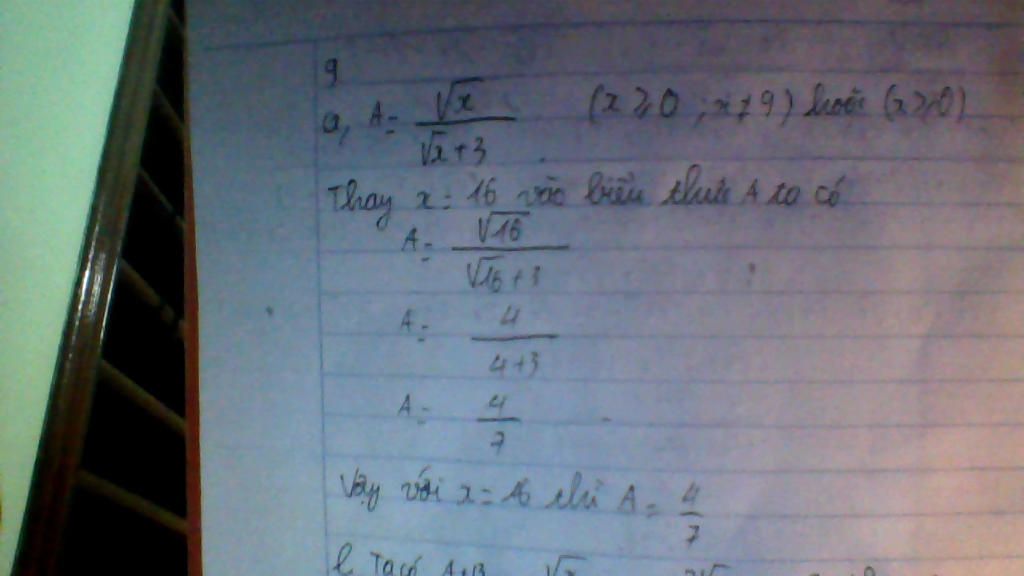 9
a, A = √x / (√x + 3) (x ⩾ 0 ; x ≠ 9) hoặc (x ⩾ 0)
Thay x = 16 vào biểu thức A ta có
A = √16 / (√16 + 3)
A = 4 / (4+3)
A = 4/7
Vậy với x = 16 thì A = 4/7
Ta có A